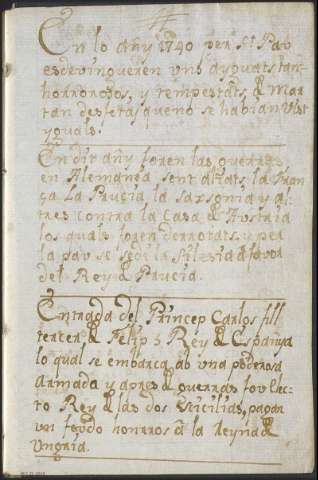 En lo añy 1740 per St. Pau
esdevingueren uns ayguats tan
horrorosos, y tempestats, d mar
tan desfetas que no se habian vist
yguals.
En dit añy foren las guerras
en Alemanya sent aliats la Fran
ça La Prucia la Saxonia y al
tres contra la Casa d Austria
los quals foren derrotats, y per
la pau se cedí la Silesia á favor
del Rey d Prucia.
Entrada del Princep Carlos fill
tercer d Felip 5 Rey d Espanya
lo qual se embarca ab una poderosa
Armada y apres d guerras fou Elec
to Rey d las dos Sicilias, pagan
un feudo honoros á la Reyna d
Ungria.